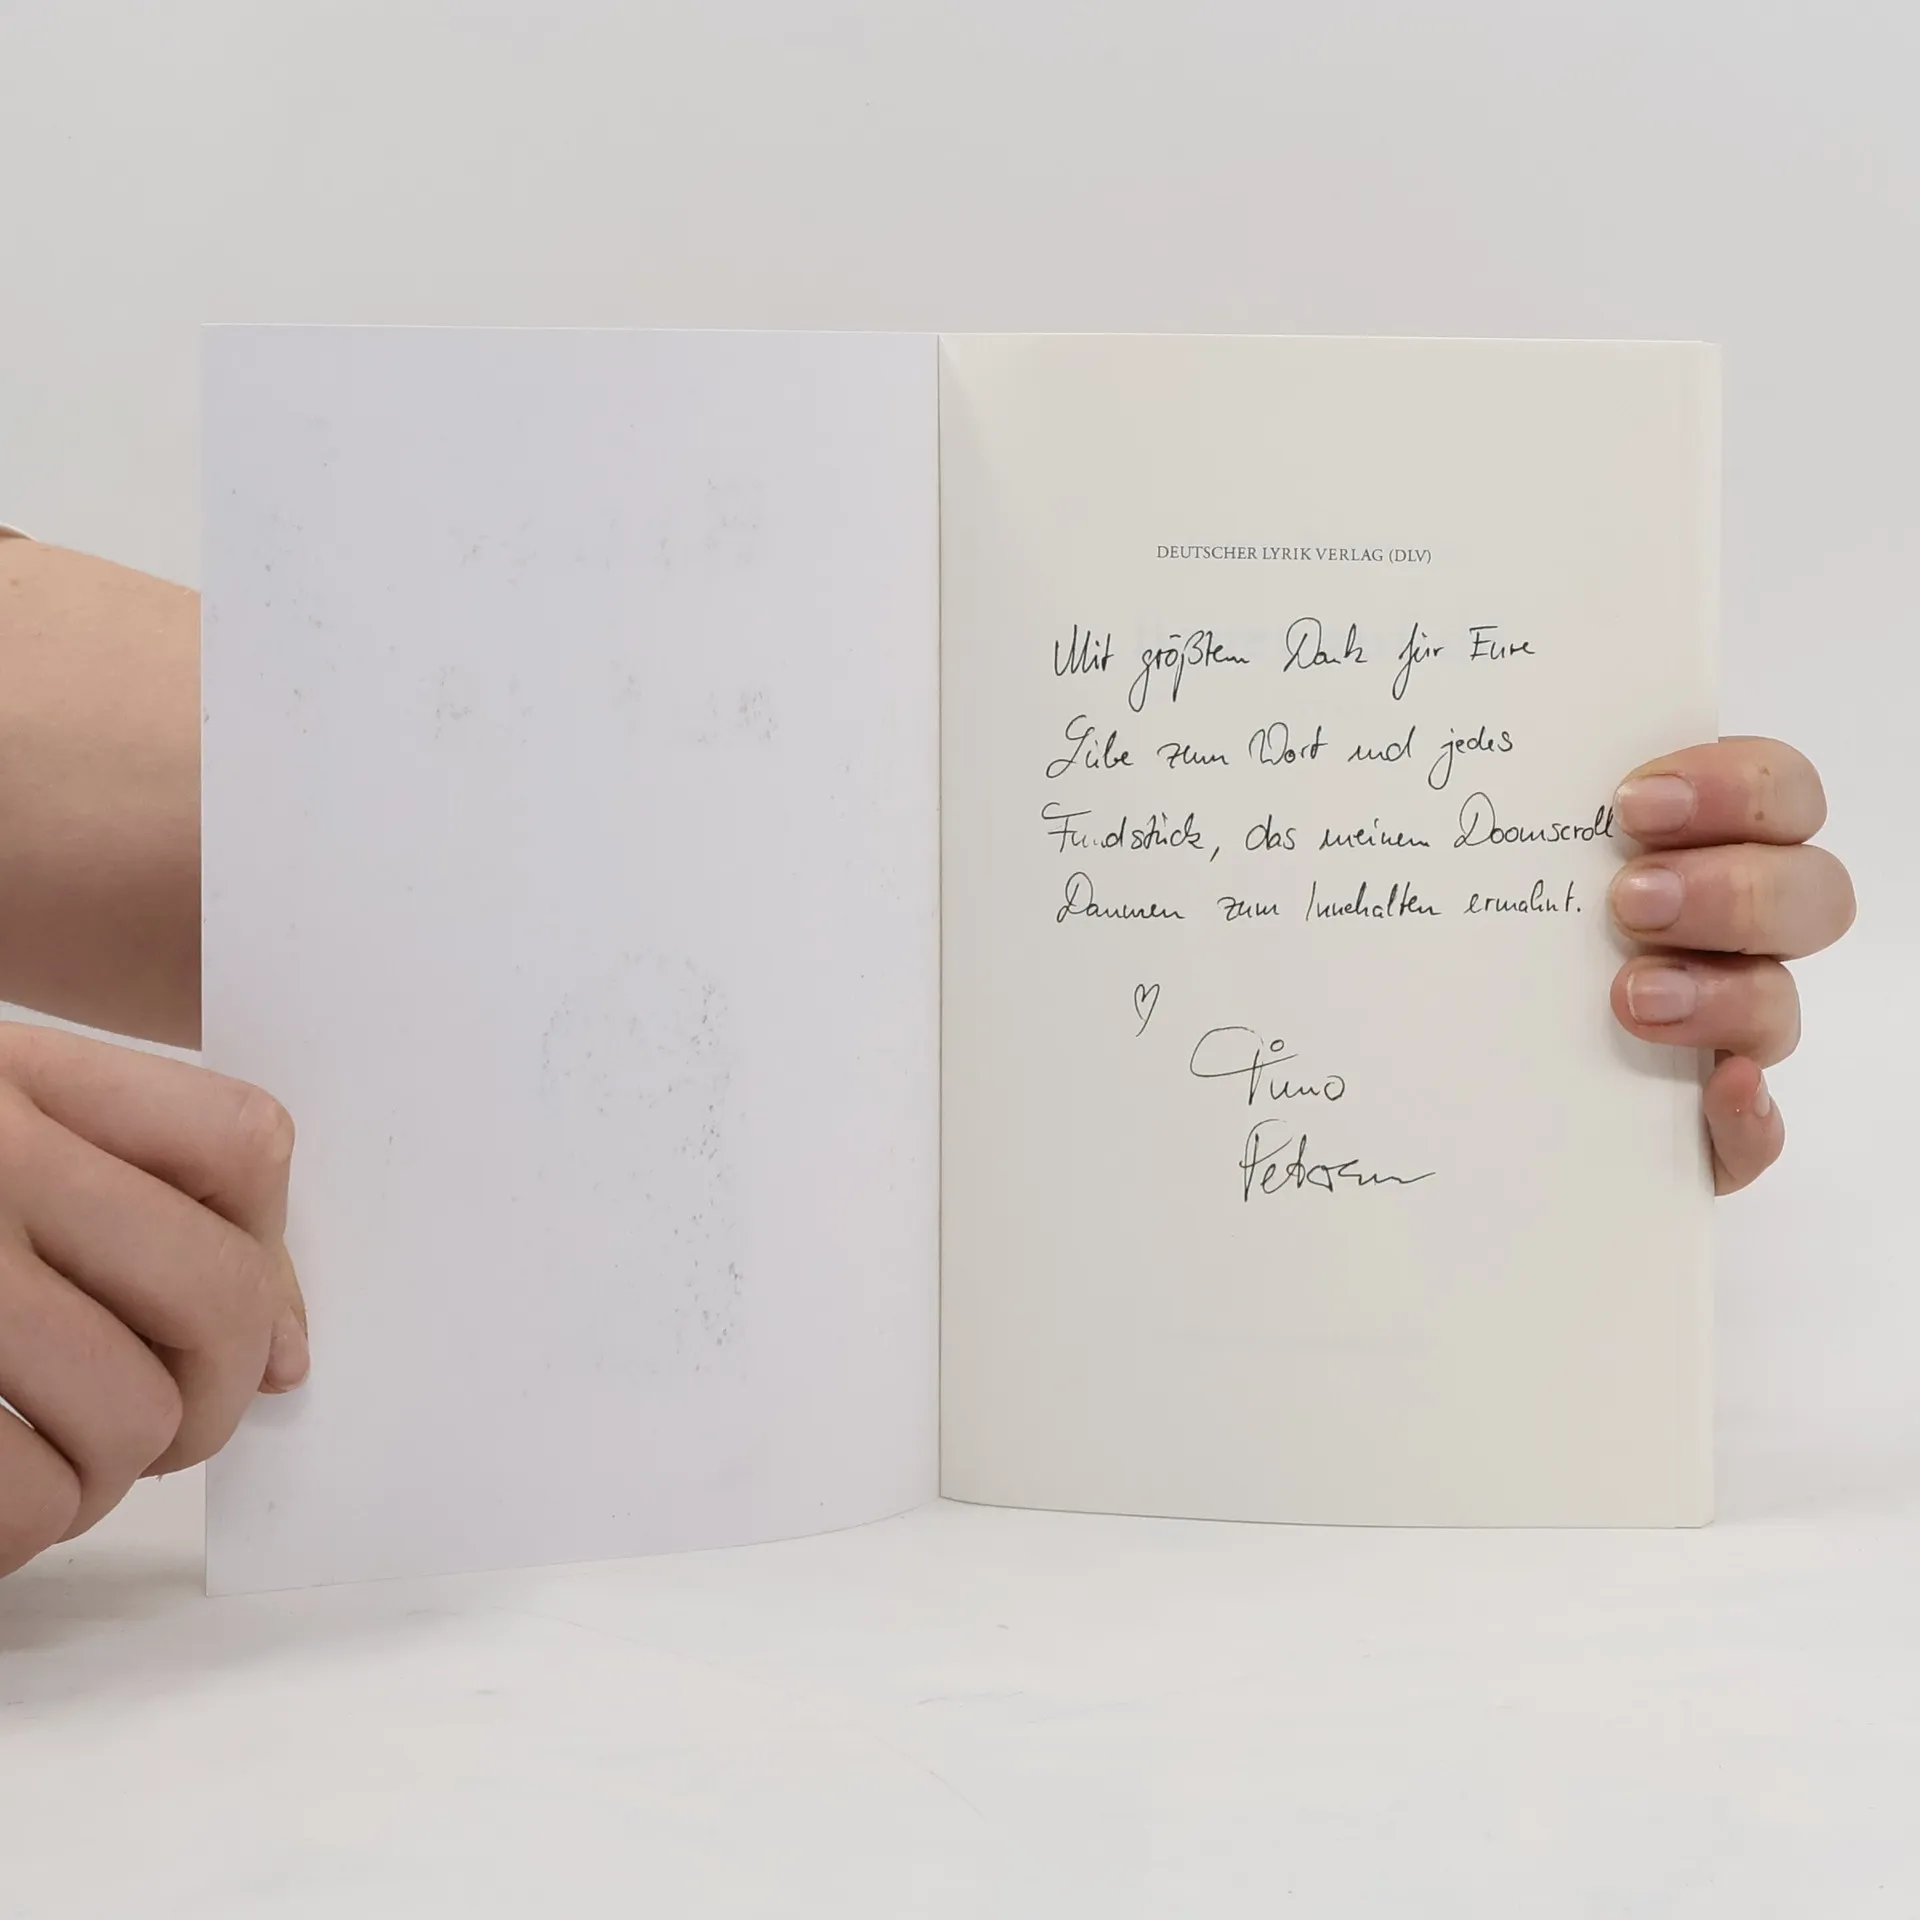 DEUTSCHER LYRIK VERLAG (DLV)
Mit größtem Dank für Eure
Liebe zum Wort und jedes
Fundstück, das meinem Doomscroll
Daumen zum Innehalten ermahnt.
Timo
Petersen